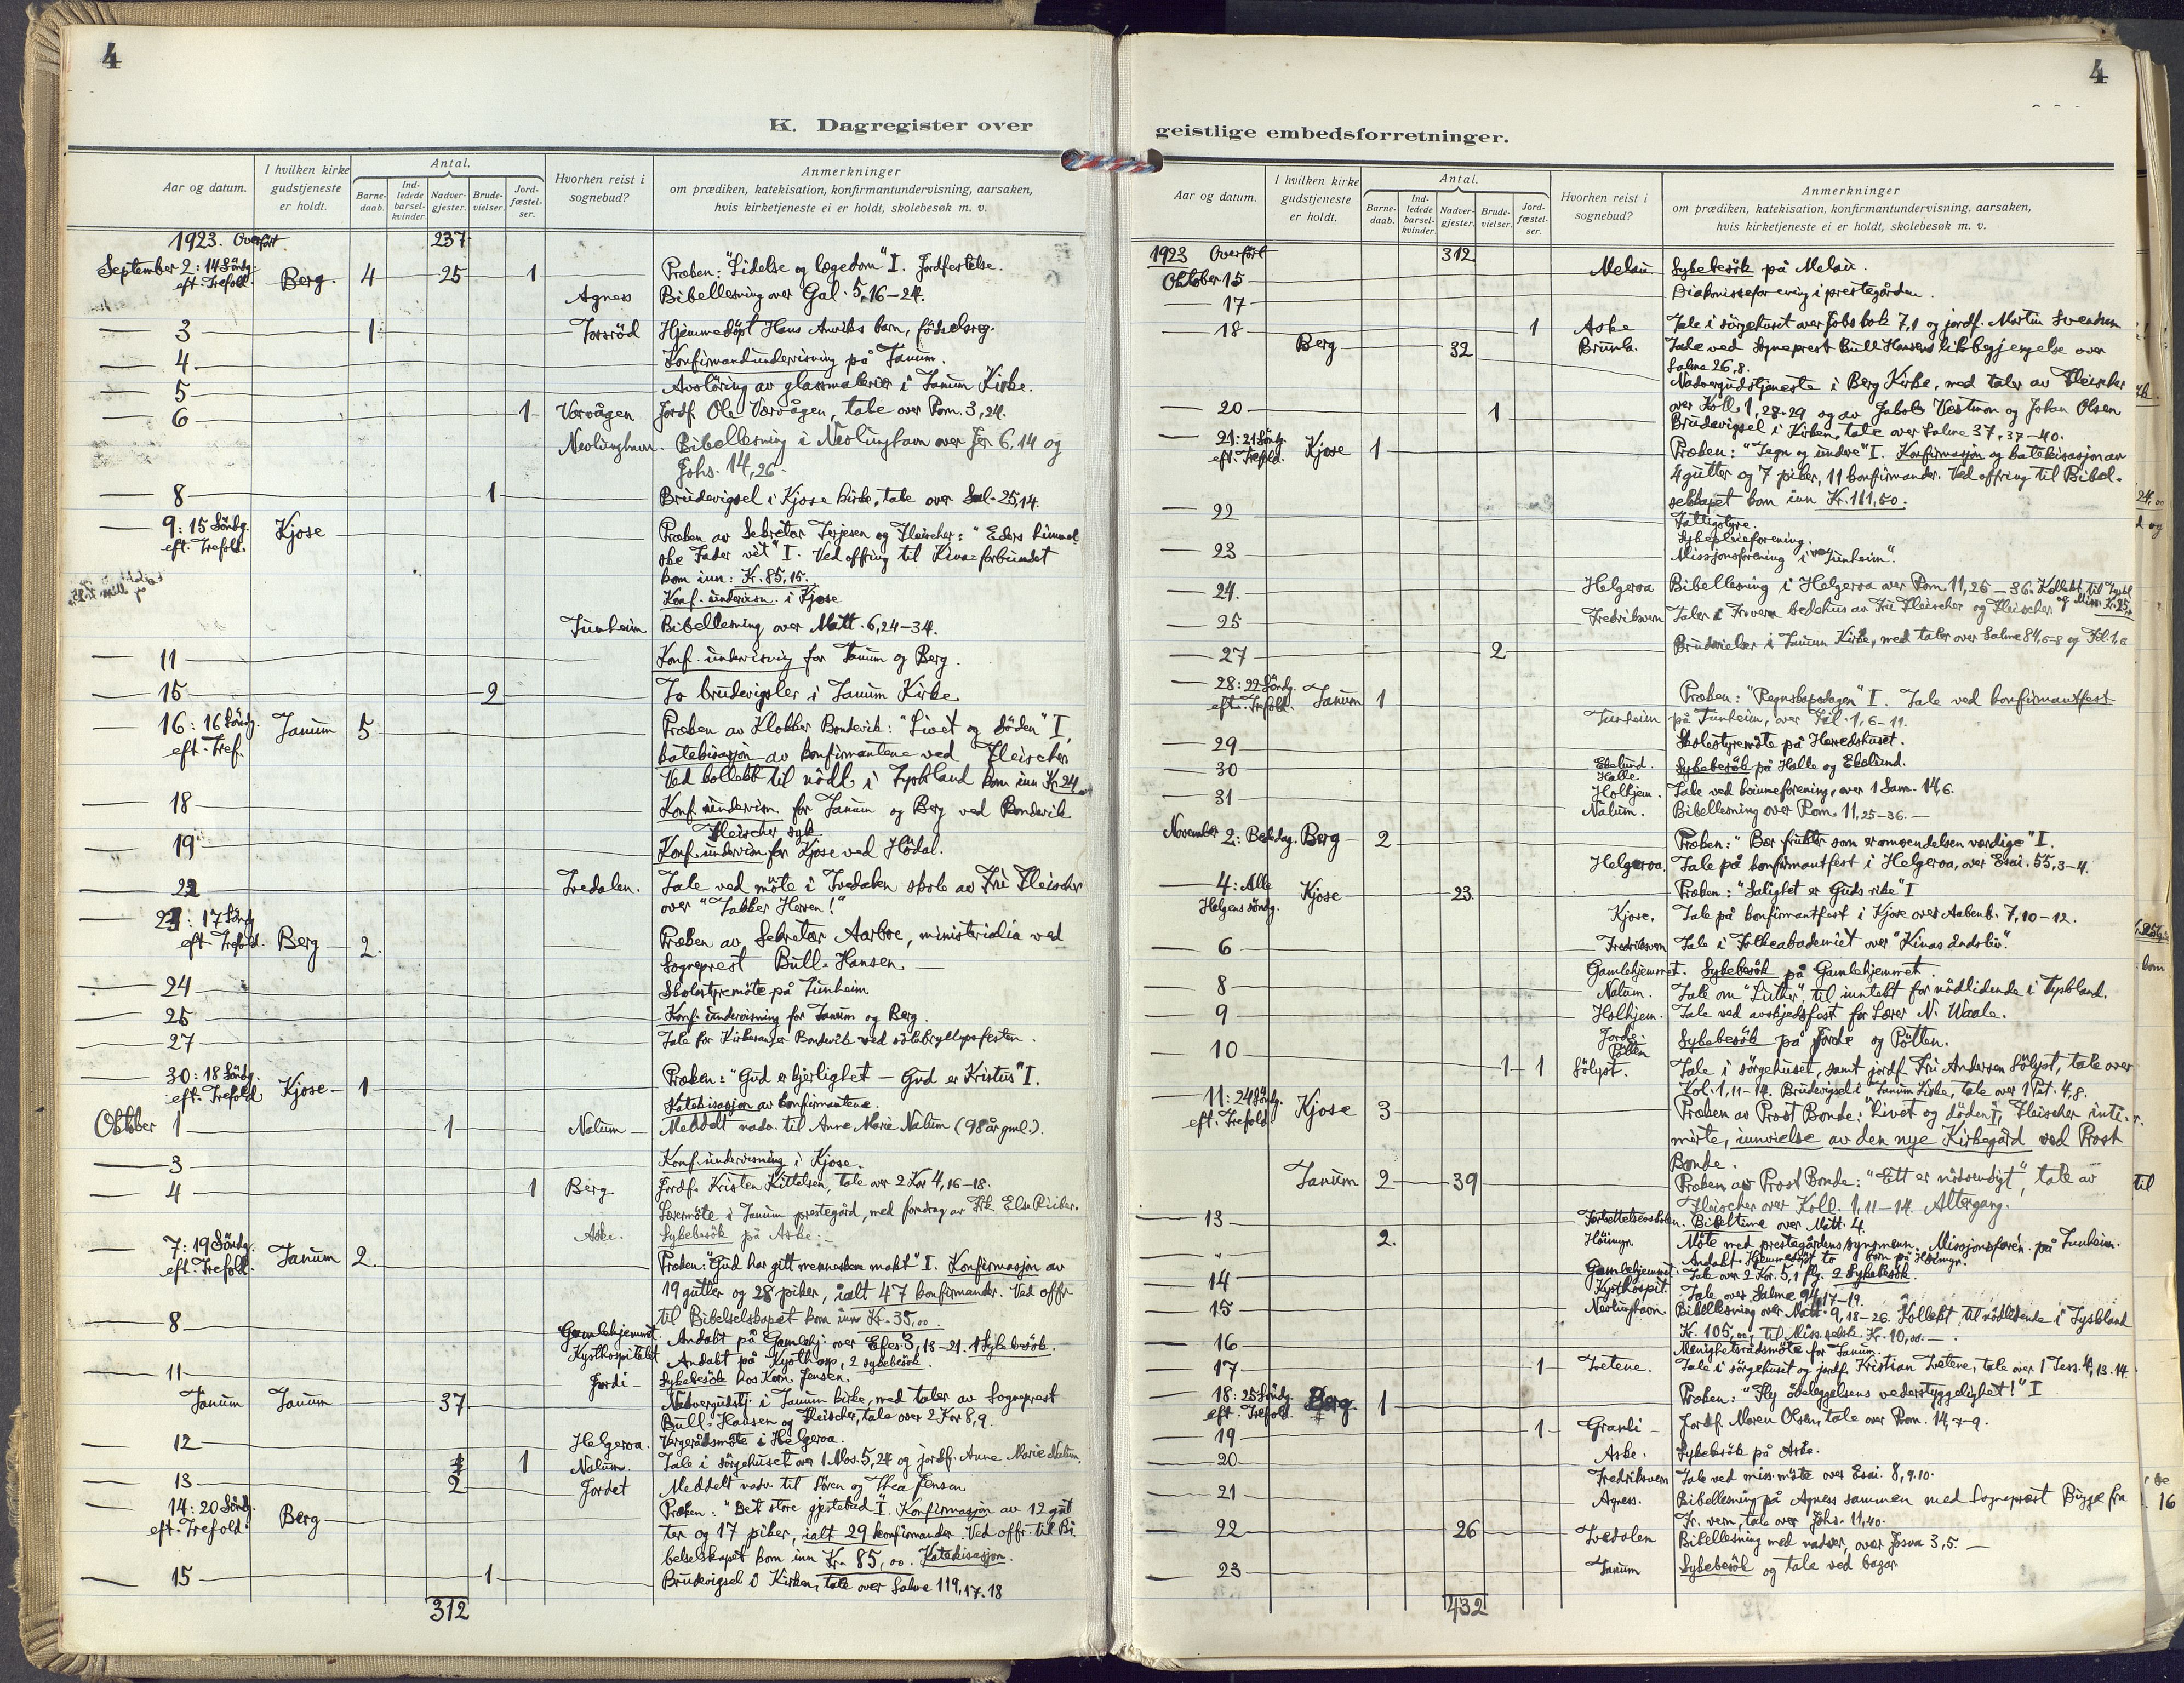 4
K. Dagregister over
Aar og datum.
I hvilken kirke gudstjeneste er holdt.
Antal.
Barne-daab.
Ind-ledede barsel-kvinder.
Nadver-gjester.
Brude-vielser.
Jord-fæstel-ser.
Hvorhen reist i sognebud?
Anmerkninger
om prædiken, katekisation, konfirmantundervisning, aarsaken,
hvis kirketjeneste ei er holdt, skolebesøk m. v.
1923. Overført 237
September 2: 14 Søndg. eft. Trefold. Berg 4 25 1 Preken: "Lidelse og lægedom" I. Jordfestelse.
Agnes Bibellesning over Gal. 5,16-24.
3 1 Hjemmedøpt Hans barn, fødselsreg.
4 Konfirmandundervisning på Tanum.
5 Avsløring av glassmalerier i Tanum Kirke.
6 1 Vervågen Jordf. Ole Vervågen, tale over Rom. 3,24.
Nevlunghavn. Bibellesning i Nevlunghavn over Jer. 6,14 og
Johs. 14,26.
8 1 Brudevigsel i Kjose kirke, tale over Sal. 25,14.
9: 15 Søndg. eft. Trefold. Kjose Preken av Sekretær Terjesen og Fleischer: "Eders himmel-
ske Fader vet" I. Ved offring til Kina-forbundet
kom inn: Kr. 85,15.
Konf. undervisn. i Kjose
Tunheim Bibellesning over Matt. 6,24-34.
11 Konf. undervisning for Tanum og Berg.
15 2 To brudevigsler i Tanum Kirke.
16: 16 Søndg. eft. Tref. Tanum 5 Preken av Klokker Bondevik: "Livet og døden" I,
katekisasjon av konfirmantene ved Fleischer
Ved kollekt til nødl. i Tyskland kom inn Kr. 24
18 Konf. undervisn. for Tanum og Berg ved Bondevik
Fleischer syk
19 Konf. undervisn. for Kjose ved Hödal.
22 Tvedalen. Tale ved møte i Tvedalen skole av Fru Fleischer
over "Takker Herren!"
23: 17 Søndg. eft. Trefold. Berg 2 Preken av Sekretær Aarboe, ministerialia ved
Sogneprest Bull-Hansen.
24 Skolestyremøte på Tunheim
25 Konf. undervisning for Tanum og Berg.
27 Tale for Kirkesanger Bondevik ved sølvbryllupsfesten.
30: 18 Søndg. eft. Trefold. Kjose 1 Preken: "Gud er kjerlighet - Gud er Kristus" I.
Katekisasjon av konfirmantene.
Oktober 1 1 Nalum Meddelt nadv. til Anne Marie Nalum (98 år gml.).
3 Konf. undervisning i Kjose.
4 1 Berg. Jordf. Kristen Kittelsen, tale over 2 Kor 4,16-18.
Lærermøte i Tanum prestegård, med foredrag av Frk. Else Rieber.
Aske. Sykebesøk på Aske.
7: 19 Søndg. eft. Trefold. Tanum 2 Preken: "Gud har gitt menneskene makt" I. Konfirmasjon av
19 gutter og 28 piker, ialt 47 konfirmander. Ved offr.
til Bibelselskapet kom inn Kr. 35,00
8 Gamlehjemmet. Andakt på Gamlehj. over Efes. 3,13-21. 1 Sykebesøk.
Kysthospitalet Andakt på Kysthosp, 2 sykebesøk.
11 Jordi Sykebesøk hos Korn. Jensen.
Tanum Tanum 37 Nadvergudstj. i Tanum kirke, med taler av Sogneprest
Bull-Hansen og Fleischer, tale over 2 Kor 8,9.
12 Helgeroa. Vergerådsmøte i Helgeroa.
1 Nalum. Tale i sørgehuset over 1 Mos. 5,24 og jordf. Anne Marie Nalum.
13 2 Jordet Meddelt nadv. til Søren og Thea Jensen
14: 20 Søndg. eft. Trefold. Berg Preken: "Det store gjestebud" I. Konfirmasjon av 12 gut
ter og 17 piker, ialt 29 konfirmander. Ved offr. til Bi
belselskapet kom inn Kr. 85,00. Katekisasjon.
15 1 Brudevigsel i Kirken, tale over Salme 119,17-18
312
4
geistlige embedsforretninger.
Aar og datum.
I hvilken kirke gudstjeneste er holdt.
Antal.
Barne-daab.
Ind-ledede barsel-kvinder.
Nadver-gjester.
Brude-vielser.
Jord-fæstel-ser.
Hvorhen reist i sognebud?
Anmerkninger
om prædiken, katekisation, konfirmantundervisning, aarsaken,
hvis kirketjeneste ei er holdt, skolebesøk m. v.
1923 Overført 312
Oktober 15 Melau Sykebesök på Melau.
17 Diakonisseforening i prestegården.
18 1 Aske Tale i sörgehuset over Jobs bok 7,1 og jordf. Martin Svendsen
Berg 32 Brunla. Tale ved Sogneprest Bull Hansens likbegjengelse over
Salme 26,8.
Nadvergudstjeneste i Berg Kirke, med taler av Fleischer
over Koll. 1,28-29 og av Jakob Vestmon og Johan Olsen
20 1 Brudevigsel i Kirken, tale over Salme 37,37-40.
21: 21 Søndg. eft. Trefold. Kjose 1 Preken: "Tegn og undere" I. Konfirmasjon og katekisasjon av
4 gutter og 7 piker, 11 konfirmander. Ved offring til Bibel-
selskapet kom inn Kr. 111,50.
22 Fattigstyre.
Sykepleieforening.
23 Missjonsforening i "Tunheim".
24. Helgeroa Bibellesning i Helgeroa over Rom. 11,25-36. Kollekt til Tyskl.
og Miss. Kr. 25,
25 Fredriksvern Taler i Fr.vern bedehus av Fru Fleischer og Fleischer
27 2 Brudevielser i Tanum Kirke, med taler over Salme 84,6-8 og Fil. 1,6
28: 22 Søndg. eft. Trefold. Tanum 1 Preken: "Regnskapsdagen" I. Tale ved konfirmantfest
Tunheim på Tunheim, over Fil. 1,6-11.
29 Skolestyremöte på Herredshuset.
30 Ekelund. Halle Sykebesök på Halle og Ekelund.
31 Holhjem. Tale ved kvinneforening, over 1 Sam. 14,6.
Nalum. Bibellesning over Rom. 11,25-36.
November 2: Bededag. Berg 2 Preken: "Bær frukter som er omvendelsen værdige" I.
Helgeroa. Tale på konfirmantfest i Helgeroa, over Esai. 55,3-4.
4: Alle Helgens söndg. Kjose 23 Preken: "Salighet er Guds rike" I
Kjose. Tale på konfirmantfest i Kjose over Aabenb. 7,10-12.
6 Fredriksvern Tale i Folkeakademiet over "Kinas åndsliv".
Gamlehjemmet. Sykebesök på Gamlehjemmet.
8 Nalum. Tale om "Luther", til inntekt for nödlidende i Tyskland.
9 Holhjem. Tale ved avskjedsfest for Lærer N. Waale.
Jorde Pötten Sykebesök på Jorde og Pötten.
10 1 1 Sölyst. Tale i sörgehuset, samt jordf. Fru Andersen Sölyst, tale over
Kol. 1,11-14. Brudevigsel i Tanum Kirke, tale over 1 Pet. 4,8.
11: 24 Söndg. eft. Trefold. Kjose 3 Preken av Prost Bonde: "Livet og döden" I, Fleischer inti-
merte, innvielse av den nye Kirkegård ved Prost
Bonde.
Tanum 2 39 Preken av Prost Bonde: "Ett er nödvendigt", tale av
Fleischer over Koll. 1,11-14. Altergang.
13 Fortsettelsesskolen. Bibeltime over Matt. 4.
2. Höimyr. Möte med prestegårdens synsmenn. Missjonsforen. på Tunheim.
Andakt. Hjemmedöpt to barn på Höimyr.
14 Gamlehjemmet. Tale over 2 Kor. 5,1 flg. 2 Sykebesök.
Kysthospit. Tale over Salme 94,17-19.
15 Nevlunghavn Bibellesning over Matt. 9,18-26. Kollekt til nödlidende i Tyskland
Kr. 105,00, til Miss.selsk. Kr. 10,00.
16 Menighetsrådsmöte for Tanum.
17 1 Tvetene. Tale i sörgehuset og jordf. Kristian Tvetene, tale over 1 Tess. 4,13-14.
18: 25 Söndg. eft. Trefold. Berg 1 Preken: "Fly ödeleggelsens vederstyggelighet!" I
19 1 Granli Jordf. Maren Olsen, tale over Rom. 14,7-9.
20 Aske. Sykebesök på Aske.
Fredriksvern Tale ved miss.möte over Esai. 8,9.10.
21 Agnes. Bibellesning på Agnes sammen med Sogneprest Bugge fra
Fr. vern, tale over Johs. 11,40.
22 26 Tvedalen Bibellesning med nadver, over Josva 3,5.
23 Tanum Sykebesök og tale ved bazar
432